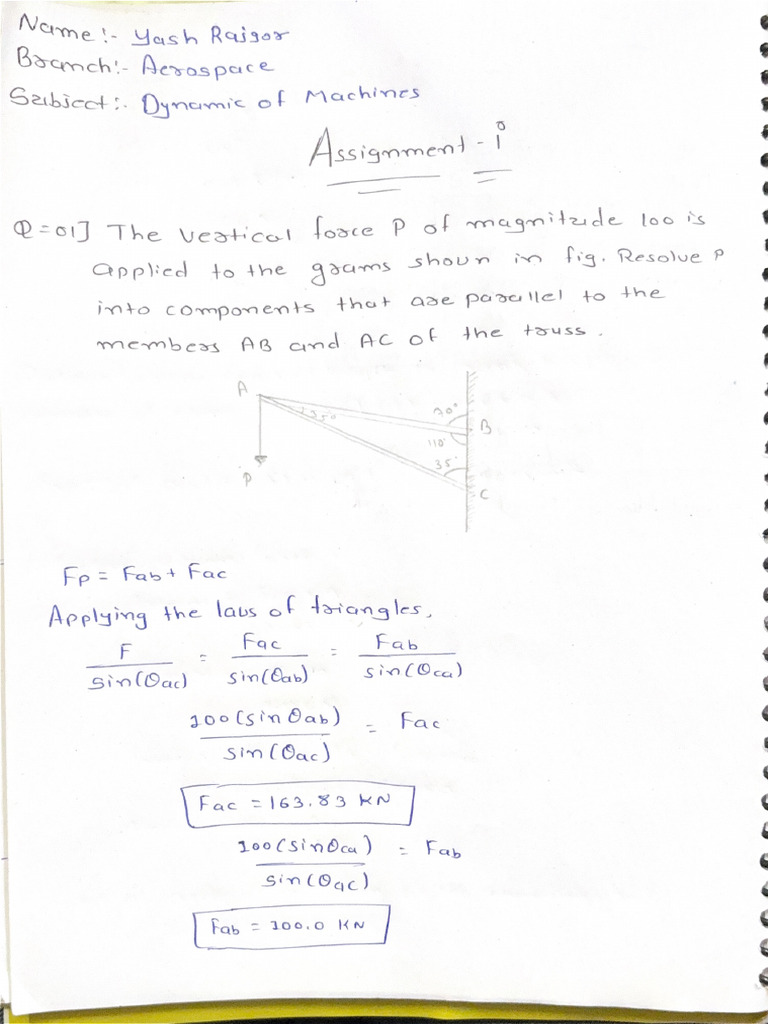 Name :- Yash Raigor
Branch :- Aerospace
Subject :- Dynamic of Machines
Assignment - 1
Q=01] The vertical force P of magnitude 100 is
applied to the grams shown in fig. Resolve P
into components that are parallel to the
members AB and AC of the truss.
A
35°
70°
B
110°
35°
C
P
Fp = Fab + Fac
Applying the laws of triangles,
F / sin(θac) = Fac / sin(θab) = Fab / sin(θca)
100(sin θab) / sin(θac) = Fac
Fac = 163.83 KN
100(sin θca) / sin(θac) = Fab
Fab = 100.0 KN